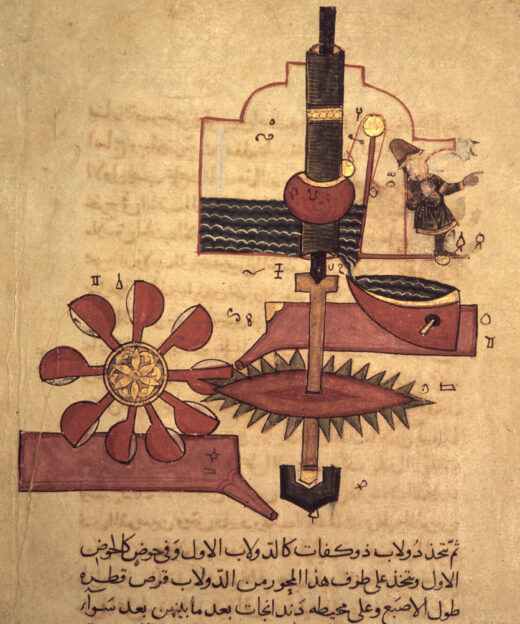 ثم تتخذ دولاب ذو كفات كالدولاب الاول وفى حوض كالحوض
الاول ويتخذ على طرف هذا المحور من الدولاب قرص قطره
طول الاصبع وعلى محيطه دندانجات بعد ما بينهن بعد سواء